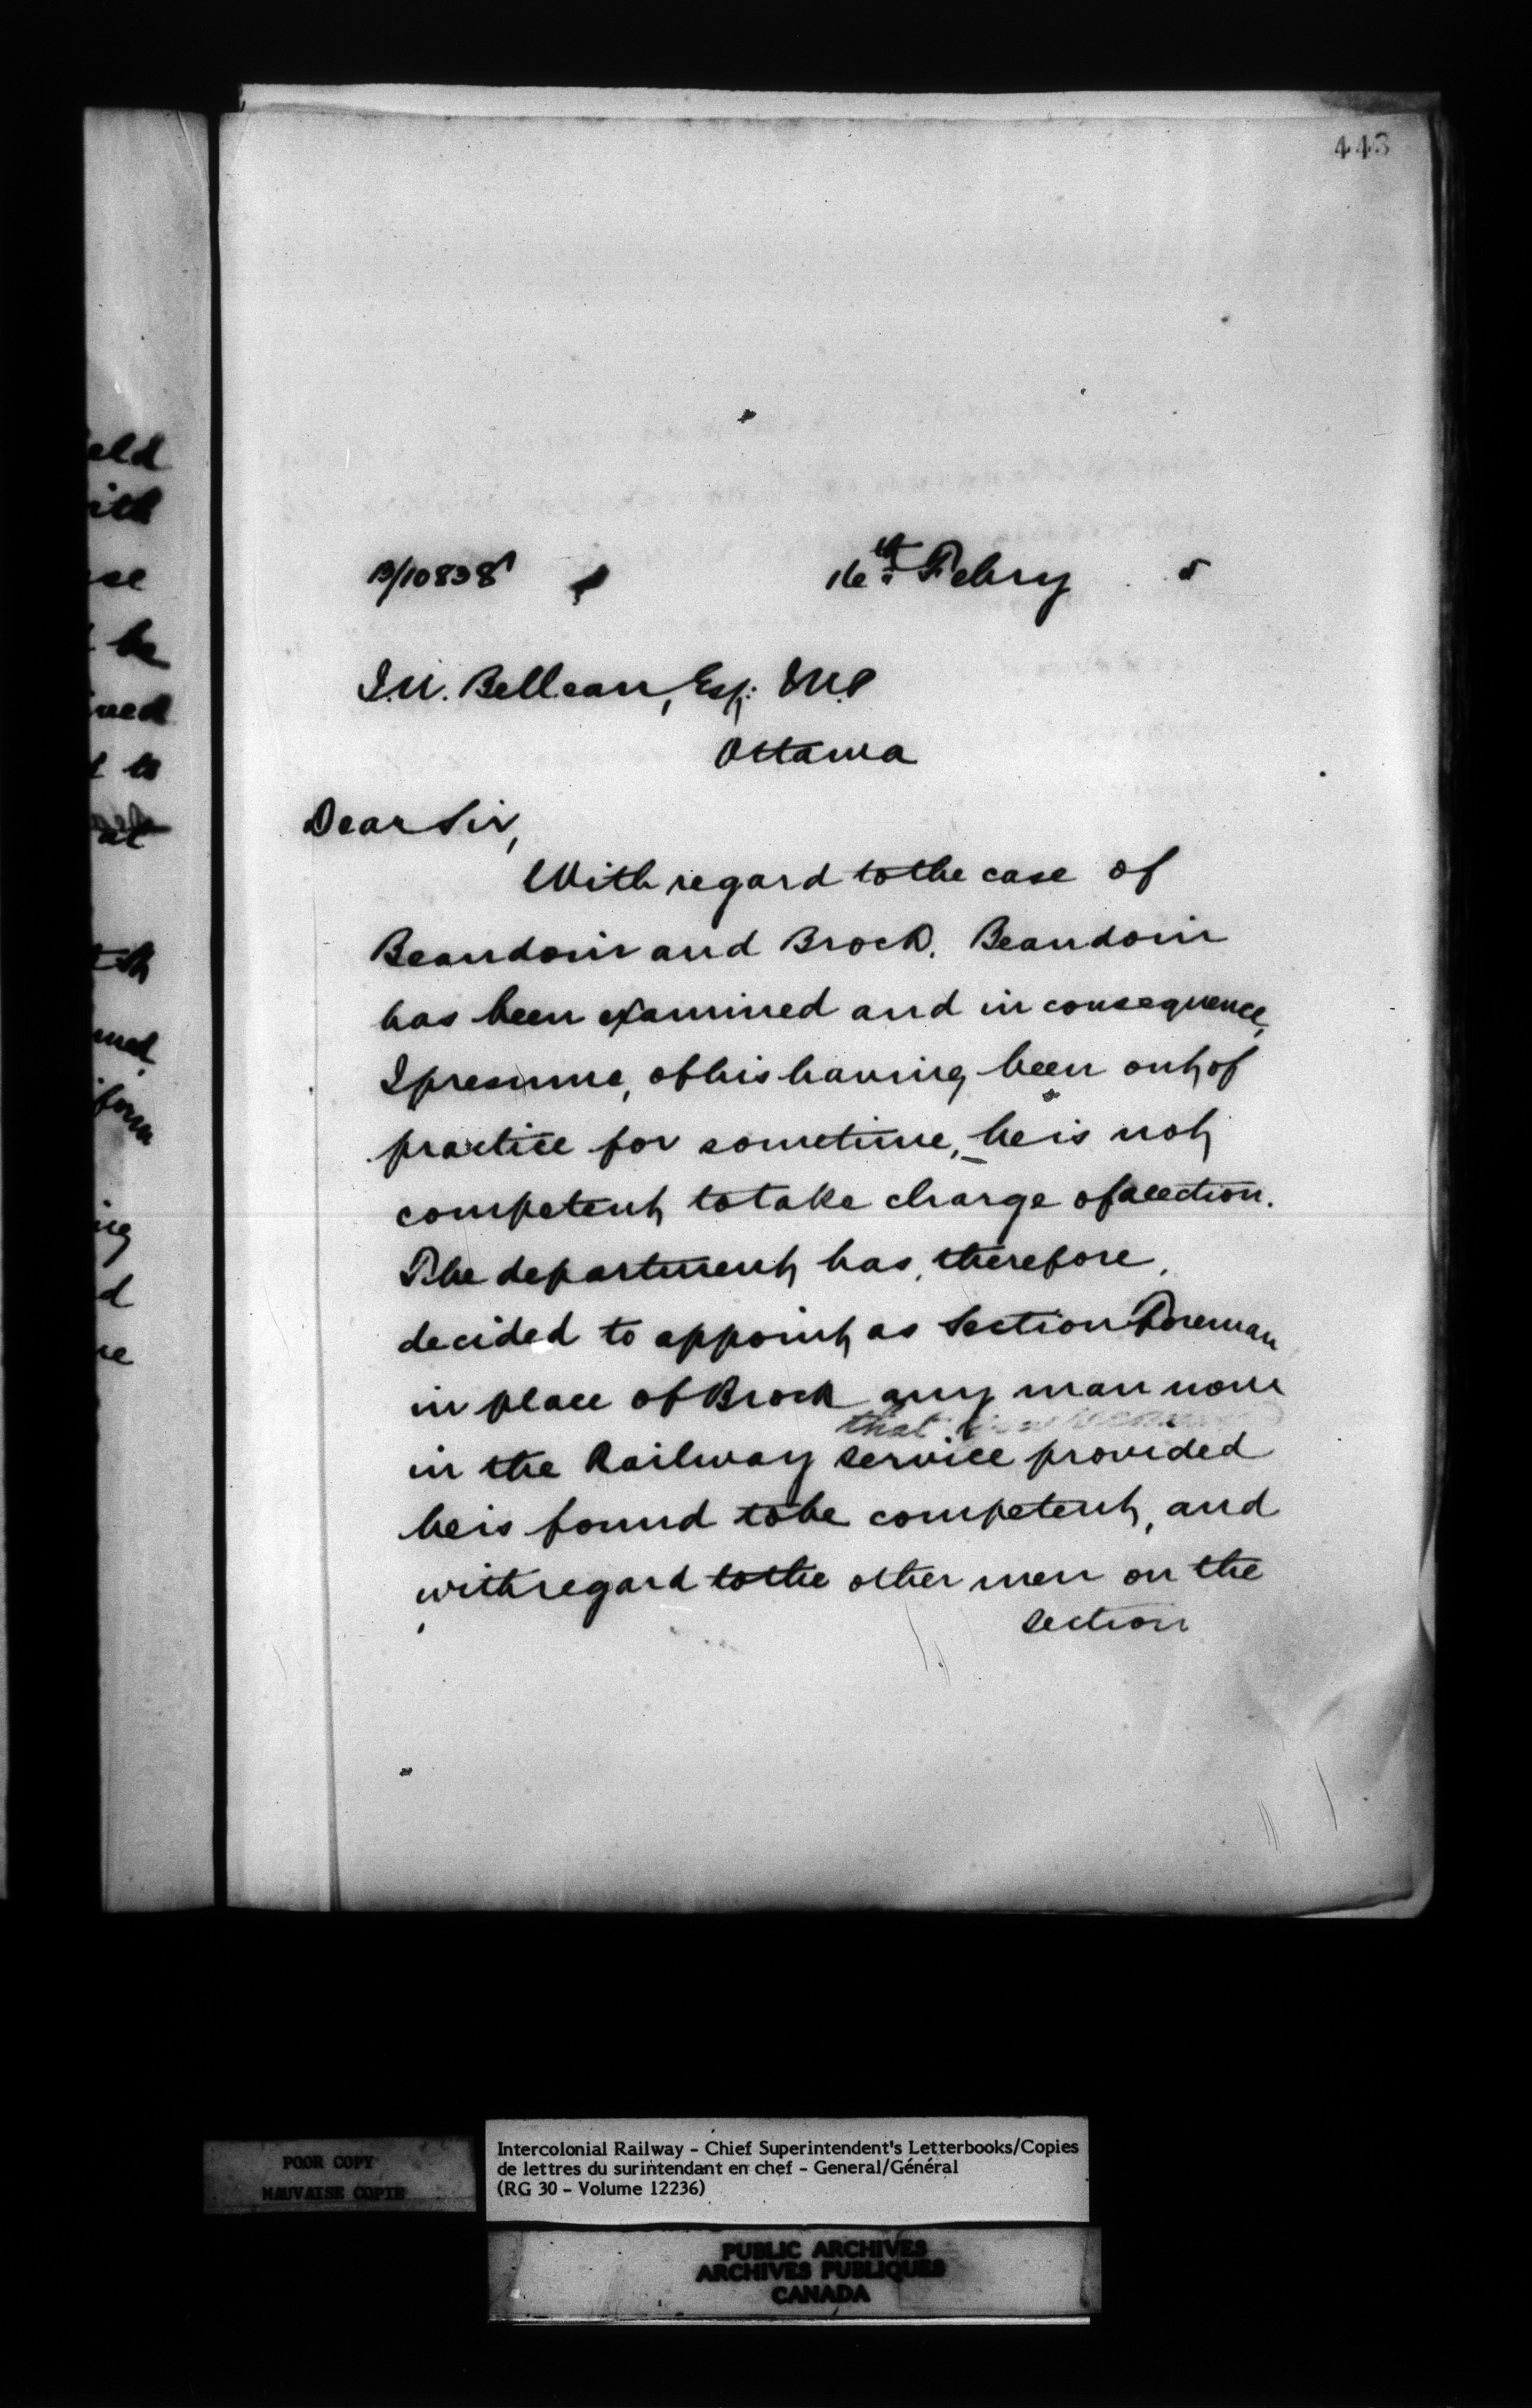 443
B/10838
16th Febry 5
I.N. Belleau, Esq: M.P
Ottawa
Dear Sir,
With regard to the case of
Beaudoin and Brock. Beaudoin
has been examined and in consequence,
I presume, of his having been out of
practice for sometime, he is not
competent to take charge of a section.
The department has, therefore,
decided to appoint as Section Foreman
in place of Brock any man now
that
in the Railway service provided
he is found to be competent, and
with regard to the other men on the
section
eld
ith
se
be
ned
to
at
med
form
ng
d
re
POOR COPY
MAUVAISE COPIE
Intercolonial Railway - Chief Superintendent's Letterbooks/Copies
de lettres du surintendant en chef - General/Général
(RG 30 - Volume 12236)
PUBLIC ARCHIVES
ARCHIVES PUBLIQUES
CANADA